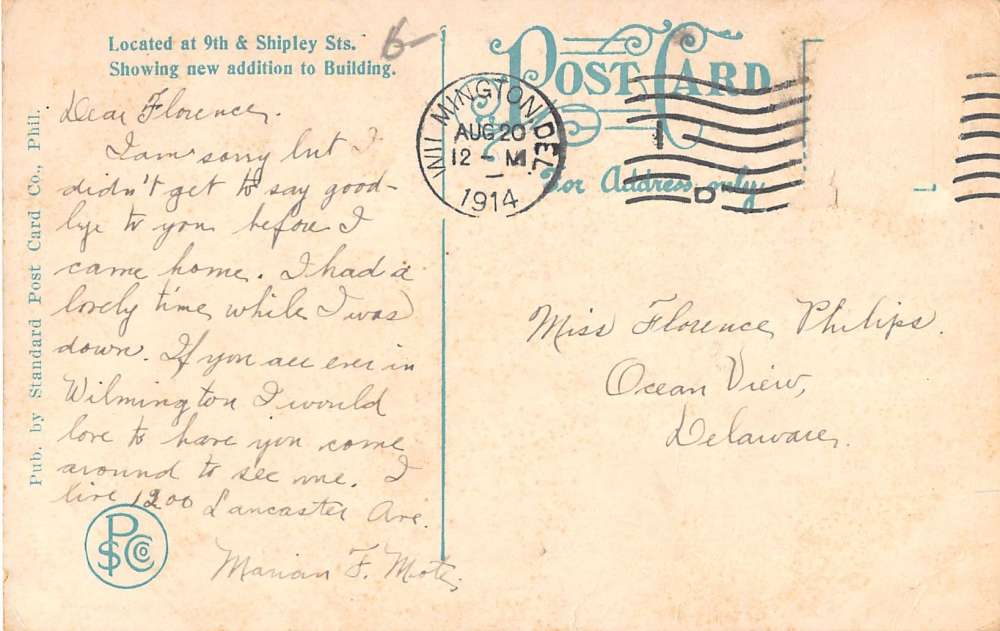 Located at 9th & Shipley Sts.
Showing new addition to Building.
6-
Pub. by Standard Post Card Co., Phil.
Dear Florence,
I am sorry but I
didn't get to say good-
bye to you before I
came home. I had a
lovely time while I was
down. If you are ever in
Wilmington I would
love to have you come
around to see me. I
live 1200 Lancaster Ave.
Marian F. Mote,
PSCCo
POST CARD
For Address only
WILMINGTON, DEL.
AUG 20
12 - M
1914
1
D
Miss Florence Philips.
Ocean View,
Delaware.